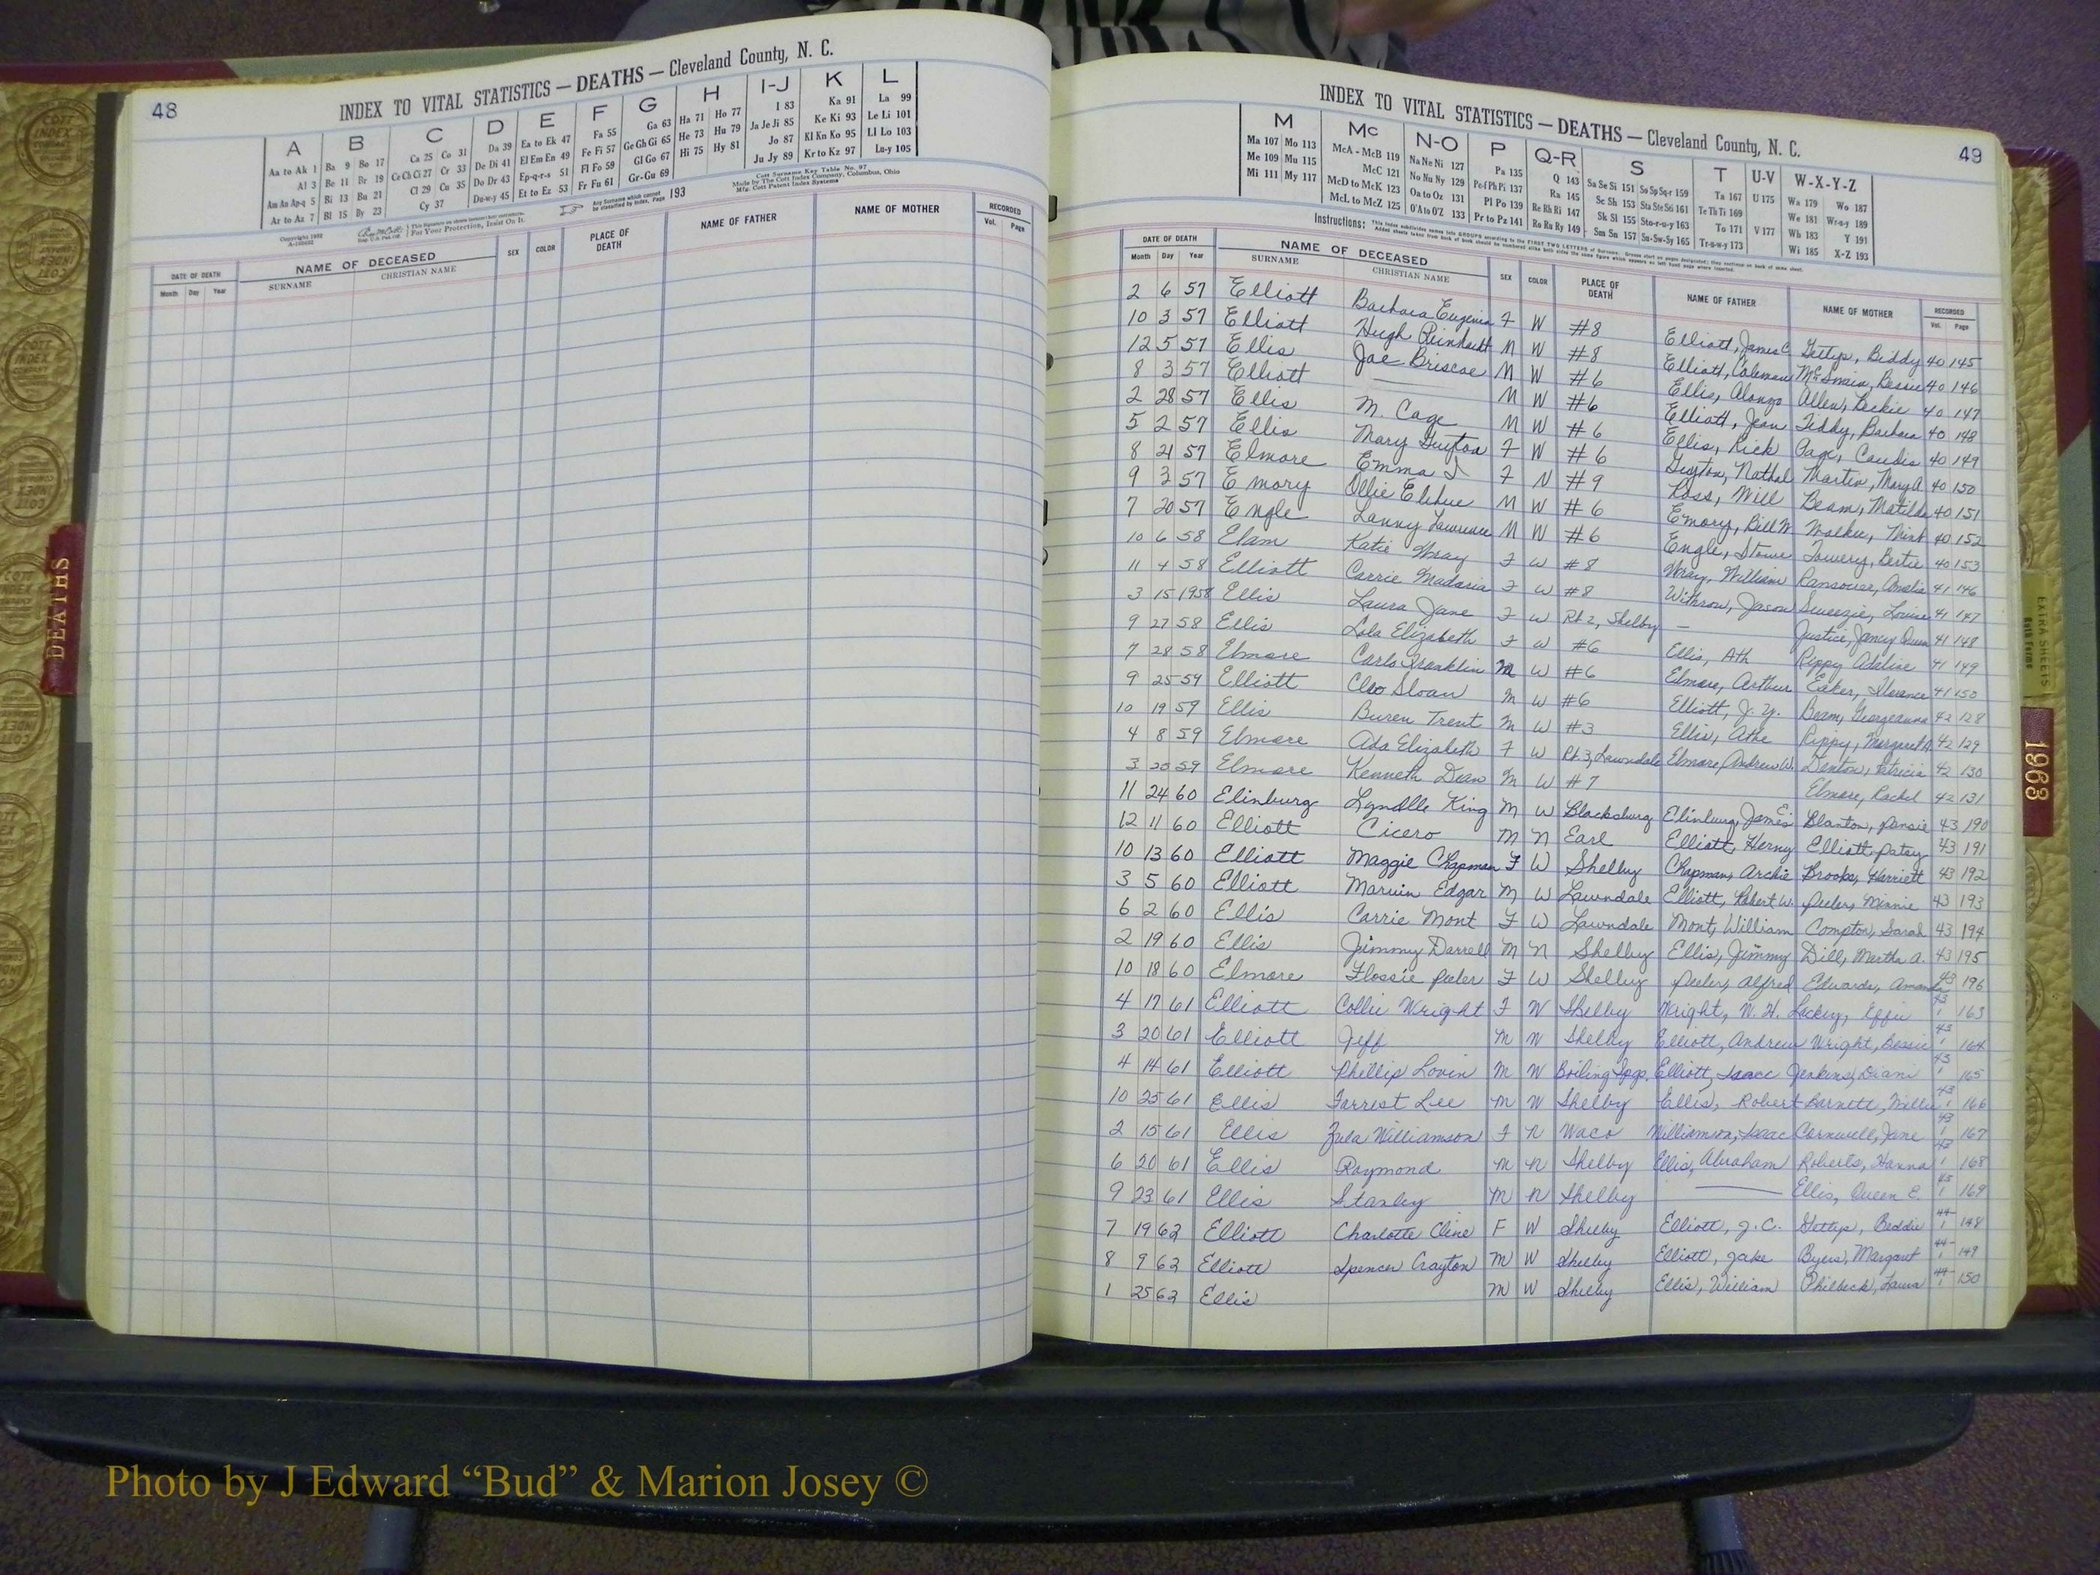 48
INDEX TO VITAL STATISTICS — DEATHS — Cleveland County, N. C.
A B C D E F G H I-J K L
Aa to Ak 1 Ba 9 Bo 17 Ca 25 Co 31 Da 39 Ea to Ek 47 Fa 55 Ga 63 Ha 71 Ho 77 I 83 Ka 91 La 99
Al 3 Be 11 Br 19 Ce Ch Ci 27 Cr 33 De Di 41 El Em En 49 Fe Fi 57 Ge Gh Gi 65 He 73 Hu 79 Ja Je Ji 85 Ke Ki 93 Le Li 101
Am An Ap-q 5 Bi 13 Bu 21 Cl 29 Cu 35 Do Dr 43 Ep-q-r-s 51 Fl Fo 59 Gl Go 67 Hi 75 Hy 81 Jo 87 Kl Kn Ko 95 Ll Lo 103
Ar to Az 7 Bl 15 By 23 Cy 37 Du-w-y 45 Et to Ez 53 Fr Fu 61 Gr-Gu 69 Ju Jy 89 Kr to Kz 97 Lu-y 105
Any Surname which cannot be classified by index, Page 193
Cott Surname Key Table No. 97
Made by The Cott Index Company, Columbus, Ohio
Mfg. Cott Patent Index Systems
DATE OF DEATH NAME OF DECEASED SEX COLOR PLACE OF DEATH NAME OF FATHER NAME OF MOTHER RECORDED
Month Day Year SURNAME CHRISTIAN NAME Vol. Page
DEATHS
49
INDEX TO VITAL STATISTICS — DEATHS — Cleveland County, N. C.
M Mc N-O P Q-R S T U-V W-X-Y-Z
Ma 107 Mo 113 McA - McB 119 Na Ne Ni 127 Pa 135 Q 143 Sa Se Si 151 So Sp Sq-r 159 Ta 167 U 175 Wa 179 Wo 187
Me 109 Mu 115 McC 121 No Nu Ny 129 Pe-f Ph Pi 137 Ra 145 Sc Sh 153 Sta Ste Sti 161 Te Th Ti 169 We 181 Wr-a-y 189
Mi 111 My 117 McD to McK 123 Oa to Oz 131 Pl Po 139 Re Rh Ri 147 Sk Sl 155 Sto-r-u-y 163 To 171 V 177 Wh 183 Y 191
McL to McZ 125 O'A to O'Z 133 Pr to Pz 141 Ro Ru Ry 149 Sm Sn 157 Su-Sw-Sy 165 Tr-u-w-y 173 Wi 185 X-Z 193
DATE OF DEATH NAME OF DECEASED SEX COLOR PLACE OF DEATH NAME OF FATHER NAME OF MOTHER RECORDED
Month Day Year SURNAME CHRISTIAN NAME Vol. Page
2 6 57 Elliott Barbara Eugenia F W #8 Elliott, James C. Gettys, Biddy 40 145
10 3 57 Elliott Hugh Reinhardt M W #8 Elliott, Coleman McSwain, Bessie 40 146
12 5 57 Ellis Joe Briscoe M W #6 Ellis, Alonzo Allen, Beckie 40 147
8 3 57 Elliott — M W #6 Elliott, Jean Tiddy, Barbara 40 148
2 28 57 Ellis M. Cage M W #6 Ellis, Rick Page, Candis 40 149
5 2 57 Ellis Mary Guyton F W #6 Guyton, Nathal Martin, Mary A. 40 150
8 21 57 Elmore Emma F N #9 Ross, Will Beam, Matilda 40 151
9 3 57 Emory Ollie Elihue M W #6 Emory, Bill W. 40 152
7 20 57 Engle Lanny Lawrence M W #6 Engle, Stowe Towery, Bertie 40 153
10 6 58 Elam Katie Wray F W #8 Wray, William Ransouer, Amelia 41 146
11 4 58 Elliott Carrie Madaria F W #8 Withrow, Jason Sweezie, Louise 41 147
3 15 1958 Ellis Laura Jane F W Rt 2, Shelby — Justice, 41 148
9 27 58 Ellis Lola Elizabeth F W #6 Ellis, Ath Rippy Adaline 41 149
7 28 58 Elmore Carlo Franklin M W #6 Elmore, Arthur Eaker, Florence 41 150
9 25 59 Elliott Cleo Sloan M W #6 Elliott, J. Y. Beam, Georgeanna 42 128
10 19 59 Ellis Buren Trent M W #3 Ellis, Athe Rippy, Margaret A. 42 129
4 8 59 Elmore Ada Elizabeth F W Rt 3, Lawndale Elmore, Andrew W. Denton, Patricia 42 130
3 20 59 Elmore Kenneth Dean M W #7 Elmore, Rachel 42 131
11 24 60 Elinburg Lyndlle King M W Blacksburg Elinburg, James E. Blanton, Pansie 43 190
12 11 60 Elliott Cicero M N Earl Elliott, Herny Elliott, Patsy 43 191
10 13 60 Elliott Maggie Chapman F W Shelby Chapman, Archie Brooks, Harriett 43 192
3 5 60 Elliott Marvin Edgar M W Lawndale Elliott, Robert W. Peeler, Minnie 43 193
6 2 60 Ellis Carrie Mont F W Lawndale Mont, William Compton, Sarah 43 194
2 19 60 Ellis Jimmy Darrell M N Shelby Ellis, Jimmy Dill, Martha A. 43 195
10 18 60 Elmore Flossie Peeler F W Shelby Peeler, Alfred Edwards, Amanda 43 196
4 17 61 Elliott Collie Wright F W Shelby Wright, W. H. Lackey, Effie 43 163
3 20 61 Elliott Jeff M W Shelby Elliott, Andrew Wright, Bessie 43 164
4 14 61 Elliott Phillip Lovin M W Boiling Spgs. Elliott, Isaac Jenkins, Diane 43 165
10 25 61 Ellis Farrest Lee M W Shelby Ellis, Robert Barnett, Mollie 43 166
2 15 61 Ellis Zula Williamson F N Waco Williamson, Isaac Cornwell, Jane 43 167
6 20 61 Ellis Raymond M N Shelby Ellis, Abraham Roberts, Hanna 43 168
9 23 61 Ellis Stanley M N Shelby — Ellis, Queen E. 169
7 19 62 Elliott Charlotte Cline F W Shelby Elliott, J. C. Gettys, Beddie 44 148
8 9 62 Elliott Spencer Crayton M W Shelby Elliott, Jake Byers, Margaret 44 149
1 25 62 Ellis M W Shelby Ellis, William Philbeck, Laura 44 150
EXTRA SHEETS
1963
Photo by J Edward “Bud” & Marion Josey ©